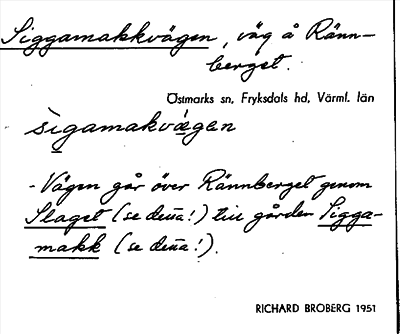 Siggamakkvägen, väg å Ränn-
berget.
Östmarks sn, Fryksdals hd, Värml. län
sìgamakvä́gen
- Vägen går över Rännberget genom
Slaget (se dessa!) till gården Sigga-
makk (se dessa!).
RICHARD BROBERG 1951